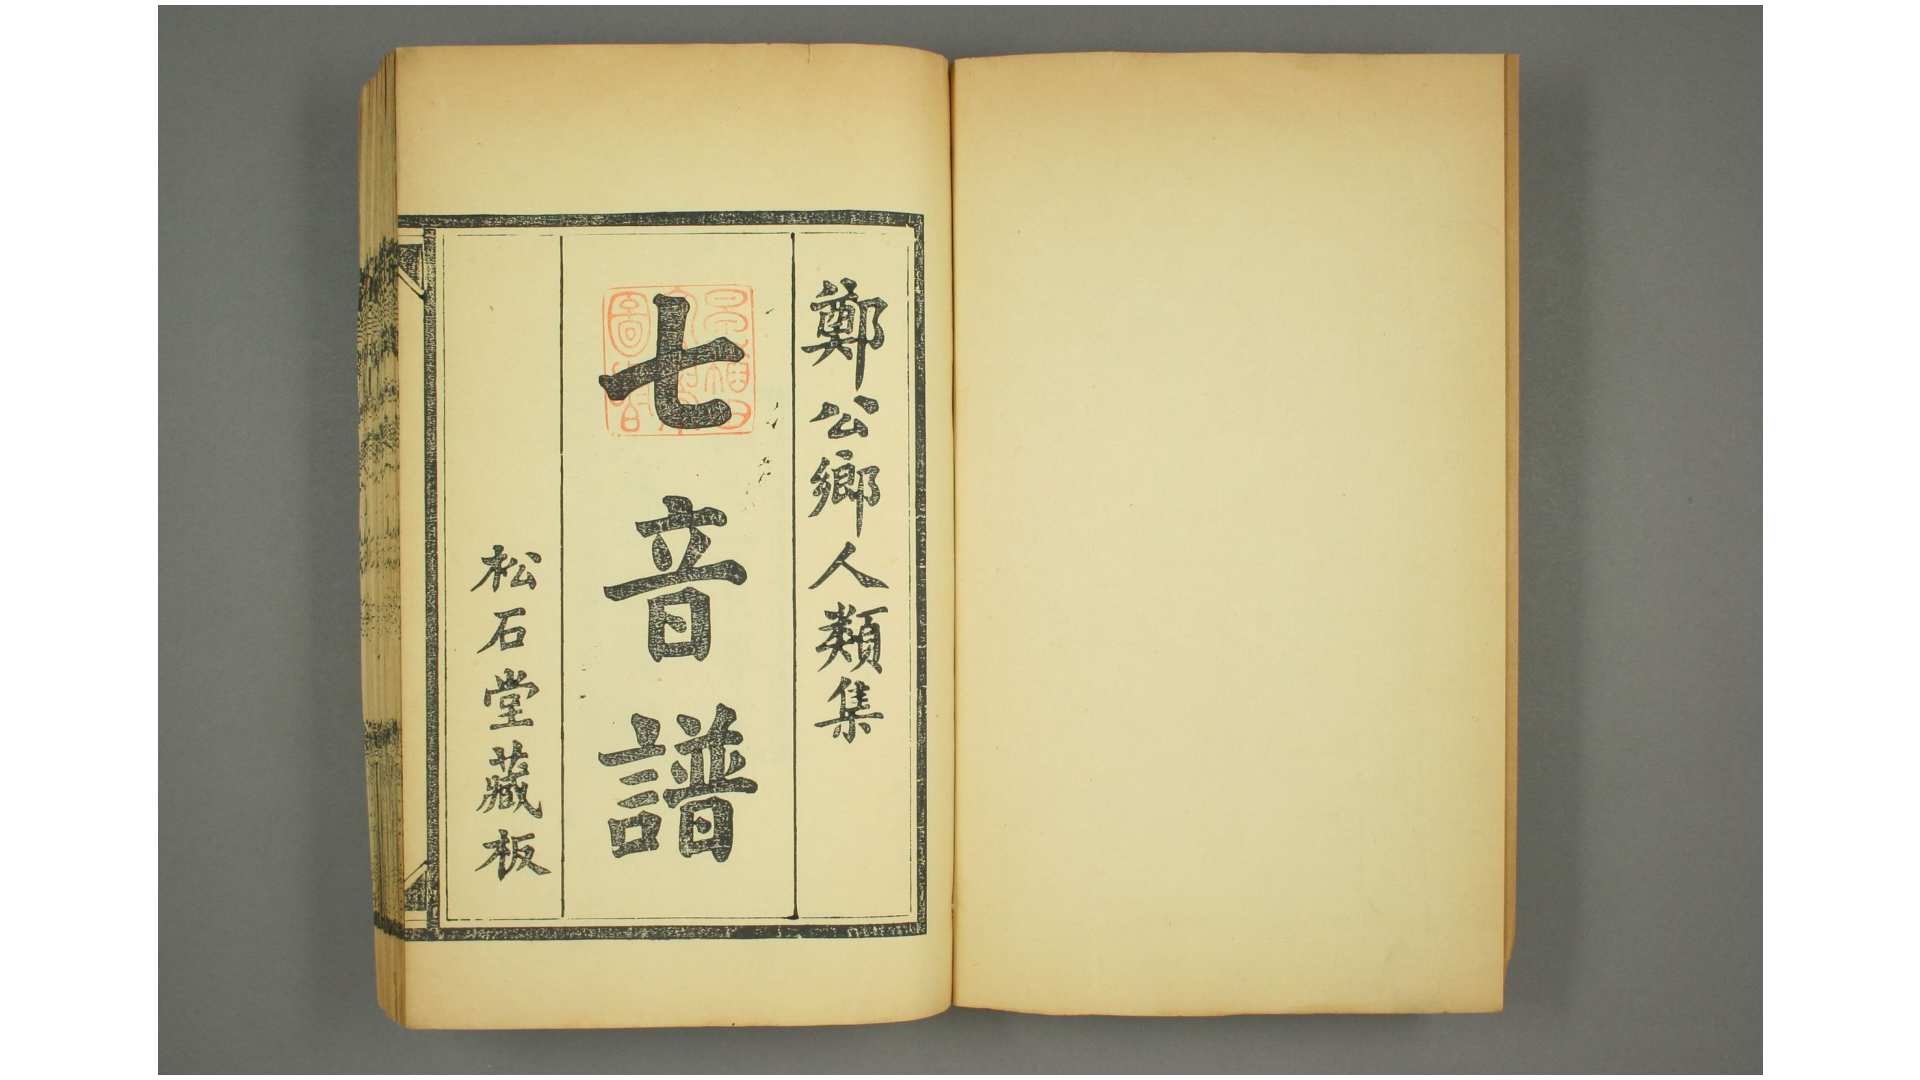 鄭公鄉人類集
七音譜
松石堂藏板